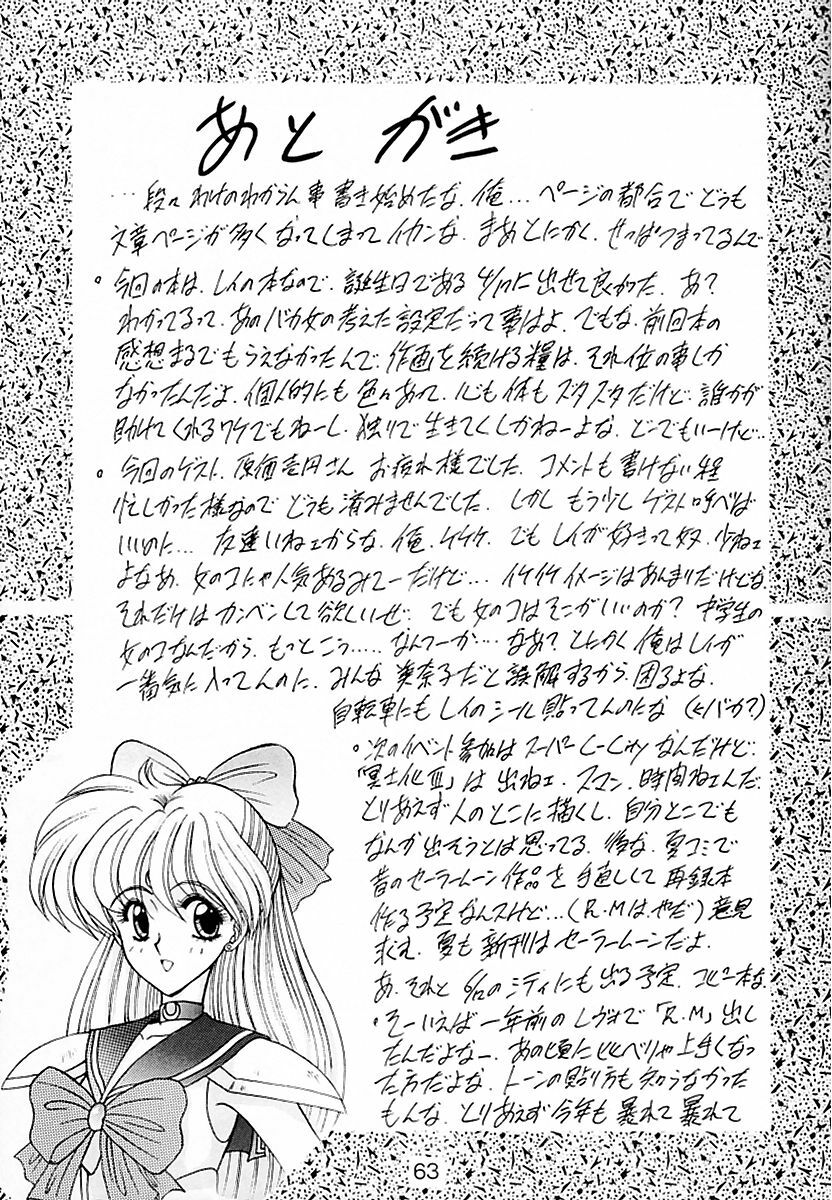 あとがき
…段々わけのわからん事書き始めたな、俺…ページの都合でどうも
文章ページが多くなってしまってイカンな。まあとにかく、せっぱつまってるんで
。今回の本は、レイの本なので、誕生日である4/17に出せて良かった。あ?
わかってるって、あのバカ女の考えた設定だって事はよ。でもな、前回本の
感想まるでもらえなかったんで、作画を続ける糧は、それ位の事しか
なかったんだよ。個人的にも色々あって、心も体もズタズタだけど、誰かが
助けてくれるワケでもねーし、独りで生きてくしかねーよな。どーでもいーけど‥
。今回のゲスト、原価壱円さん お疲れ様でした。コメントも書けない程
忙しかった様なので どうも済みませんでした。しかし もう少しゲスト呼べれば
いいのに… 友達いねェからな、俺、ケケケ。でもレイが好きって奴、少ねェ
よなあ。女のコにゃ人気あるみてーだけど… イケイケイメージはあんまりだけどな
それだけはカンベンして欲しいぜ。でも女のコはそこがいいのか?中学生の
女のコなんだから、もっとこう……なんつーか…なあ?とにかく俺はレイが
一番気に入ってんのに、みんな美奈子だと誤解するから、困るよな。
自転車にもレイのシール貼ってんのにな(←バカ?)
。次のイベント参加はスーパーC-Cityなんだけど、
「冥土化Ⅲ」は出ねェ。スマン、時間ねェんだ。
とりあえず人のとこに描くし、自分とこでも
なんか出そうとは思ってる。後な、夏コミで
昔のセーラームーン作品を手直しして再録本
作る予定なんスけど…(R.Mはやだ)意見
求む。夏も新刊はセーラームーンだよ。
あ、それと 6/10のシティにも出る予定。コピー本な
。そーいえば一年前のレヴォで「R.M」出し
たんだよなー。あの頃に比べりゃ上手くなっ
た方だよな。トーンの貼り方も知らなかった
もんな。とりあえず今年も暴れて暴れて
63